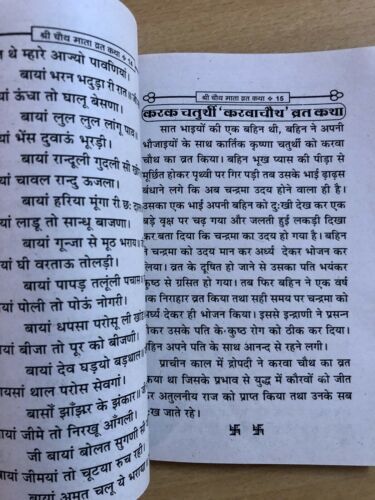 श्री चौथ माता व्रत कथा ❖ 14
त थे म्हारे आज्यो पावणियां।
बायां भरन भदुड़ा री रात
ां ऊंधा तो घालू बेसणा।
बायां लुल लुल लांगू पाव
ां भैंस दुवाऊं भूरड़ी।
बायां रान्दूली गुदली सी खी
ां चावल रान्दु ऊजला।
बायां हरिया मूंगा री छ
ां लाडू तो सान्धू बाजणा।
बायां गून्जा से मूठ भराय
ां घी वरताऊ तोलड़ी।
बायां पापड़ तलूंली पचास
ां पोली तो पोऊं नोगरी।
बायां धपसा परोसू ली खां
ां बीजा तो पूर को बीजणी।
बायां देव घड़यो बड़थाल
यसां थाल परोस सेवगां।
बासों झाँझर के झंकार
यां जीमे तो निरखू आँगली।
जी बायां बोलत सुगणी सी
यां जीमयां तो चूटया रुच रही।
बायां अमृत चलू ये भराया
श्री चौथ माता व्रत कथा ❖ 15
करक चतुर्थी 'करवाचौथ' व्रत कथा
सात भाइयों की एक बहिन थी, बहिन ने अपनी
भौजाइयों के साथ कार्तिक कृष्णा चतुर्थी को करवा
चौथ का व्रत किया। बहिन भूख प्यास की पीड़ा से
मूर्छित होकर पृथ्वी पर गिर पड़ी तब उसके भाई ढ़ाढ़स
बंधाने लगे कि अब चन्द्रमा उदय होने वाला ही है।
उसका एक भाई अपनी बहिन को दुःखी देख कर एक
बड़े वृक्ष पर चढ़ गया और जलती हुई लकड़ी दिखा
कर बता दिया कि चन्द्रमा का उदय हो गया है। बहिन
ने चन्द्रमा को उदय मान कर अर्ध्य देकर भोजन कर
लिया। व्रत के दूषित हो जाने से उसका पति भयंकर
कुष्ठ से ग्रसित हो गया। तब फिर बहिन ने एक वर्ष
तक निराहार व्रत किया तथा सही समय पर चन्द्रमा को
अर्ध्य देकर ही भोजन किया। इससे इन्द्राणी ने प्रसन्न
होकर उसके पति के-कुष्ठ रोग को ठीक कर दिया।
बहिन अपने पति के साथ आनन्द से रहने लगी।
प्राचीन काल में द्रोपदी ने करवा चौथ का व्रत
किया था जिसके प्रभाव से युद्ध में कौरवों को जीत
कर अतुलनीय राज को प्राप्त किया तथा उनके सब
दुःख जाते रहे।
卐 卐